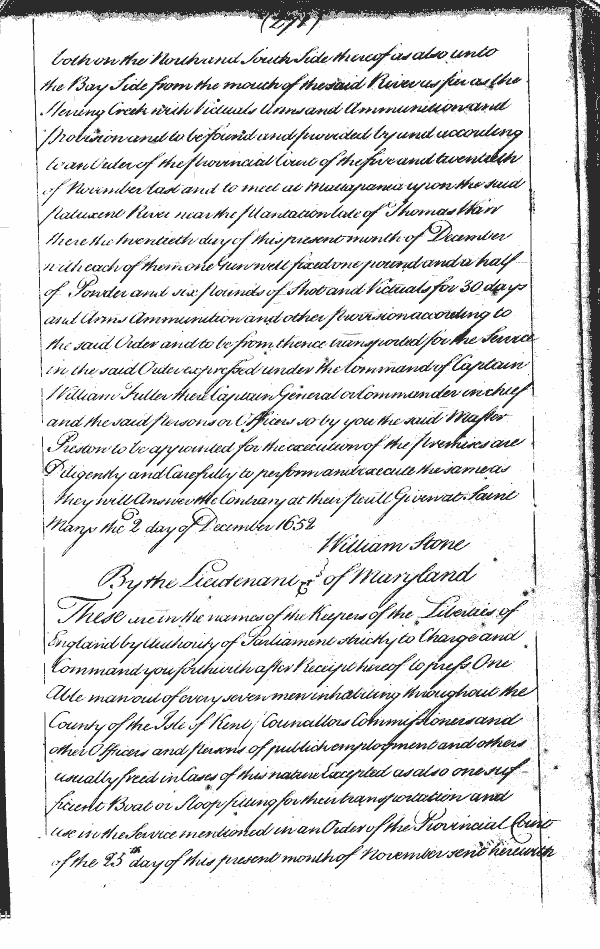 both on the North and South Side thereof as also unto
the Bay Side from the mouth of the said River as far as the
Herring Creek with Victuals arms and Ammunition and
provision and to be found and provided by und according
to an Order of the provincial Court of the five and twentieth
of November last and to meet at Mattapania upon the said
patuxent River near the plantation late of Thomas Warr
there the twentieth day of this present month of December
with each of them one Gun well fixed one pound and a half
of Powder and six pounds of Shot and Victuals for 30 days
and Arms Ammunition and other provision according to
the said Order and to be from thence transported for the Service
in the said Order expressed under the Command of Captain
William Fuller there Captain General or Commander in chief
and the said persons or Officers so by you the said Master
Preston to be appointed for the execution of the premises are
Diligently and Carefully to perform and execute the same as
they will Answer the Contrary at their perill Given at Saint
Marys the 2 day of December 1652
William Stone
By the Lieutenant &c.s of Maryland
These are in the names of the Keepers of the Liberties of
England by Authority of Parliament strictly to Charge and
Command you forthwith after Receipt hereof to press One
Able man out of every seven men inhabiting throughout the
County of the Isle of Kent, Councillors Commissioners and
other Officers and persons of publick employment and others
usually freed in Cases of this nature Excepted as also one suf
ficient Boat or Sloop fitting for their transportation and
use in the Service mentioned in an Order of the Provincial Court
of the 25th day of this present month of November sent herewith